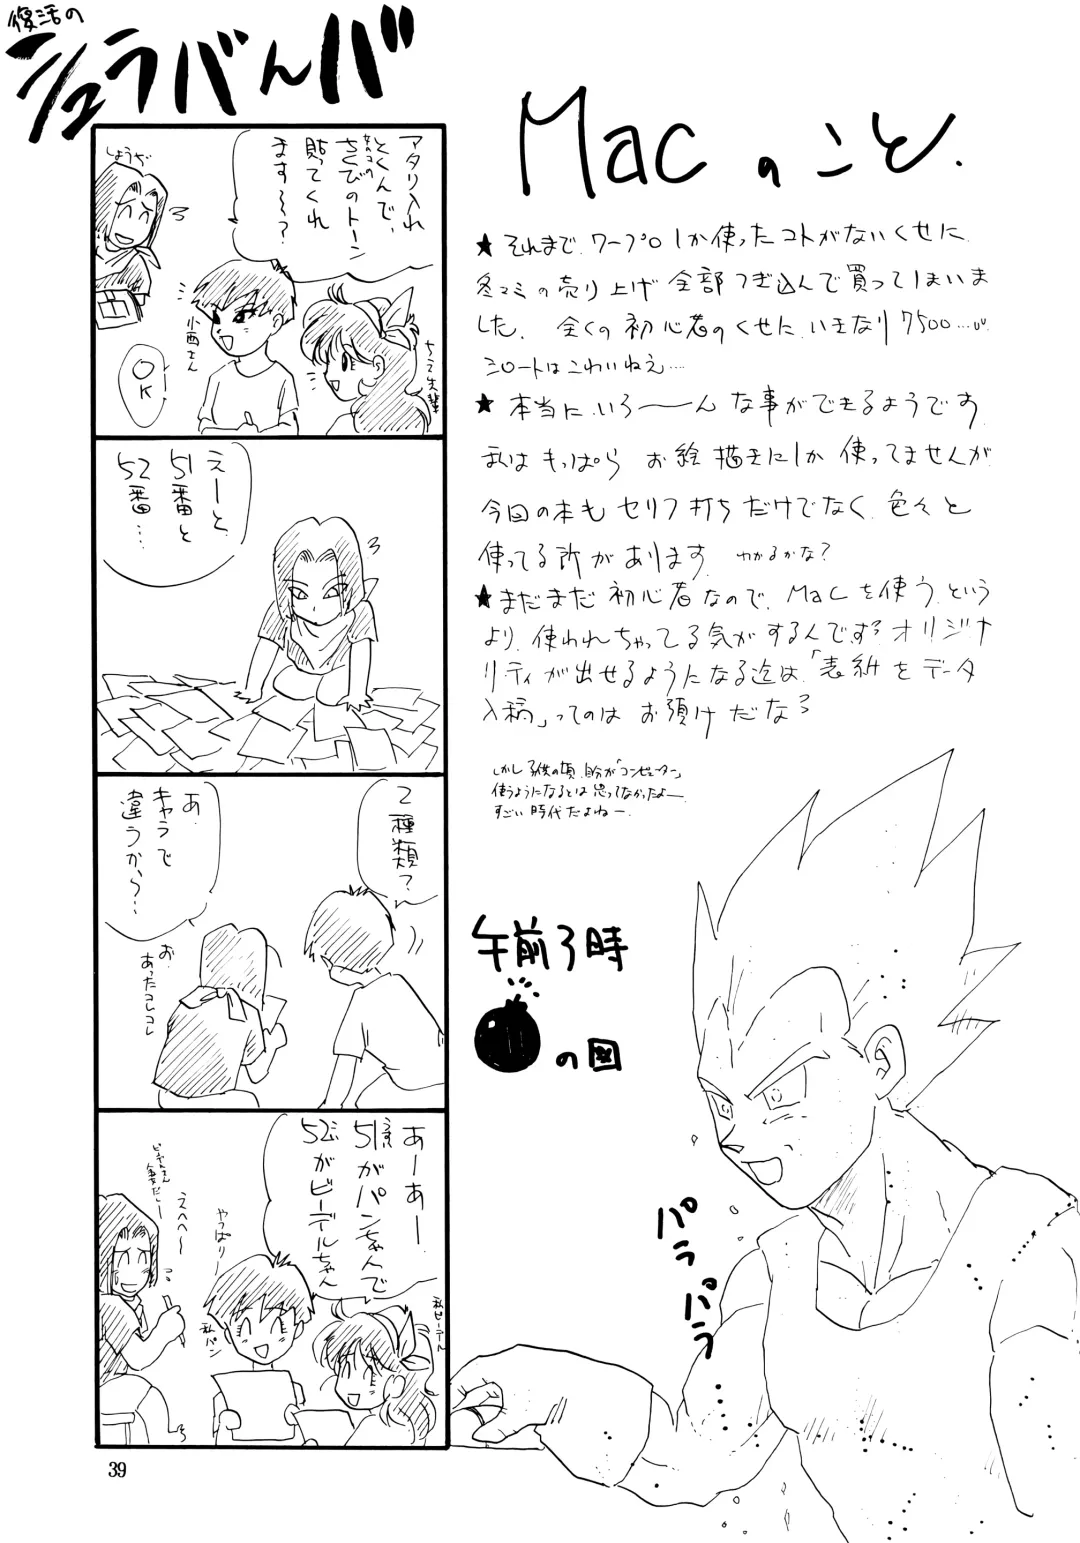 復活の
シュラバんバ
Macのこと.
★それまで、ワープロしか使ったコトがないくせに
冬コミの売り上げ全部つぎ込んで買ってしまいま
した. 全くの初心者のくせに、いきなり7500…
シロートはこわいねえ….
★本当にいろーーんな事ができるようです
私はもっぱら お絵描きにしか使ってませんが
今回の本もセリフ打ちだけでなく、色々と
使ってる所があります. わかるかな?
★まだまだ初心者なので、Macを使う、という
より、使われちゃってる気がするんです? オリジナ
リティが出せるようになる迄は、「表紙をデータ
入稿」ってのはお預けだな?
しかし子供の頃、自分が「コンピューター」
使うようになるとは思ってなかったよー.
すごい時代だよねー.
午前3時
の図
パラ
パラ
しょうじ
アタリ入れ
とくんで、
ちくびのトーン
貼ってくれ
ます〜?
小西さん
ちえ先輩
OK
えーと、
51番と
52番…
2種類?
あ、
キャラで
違うから…
お、
あったコレコレ
あーあー
51がパンちゃんで
52がビーデルちゃん
私ビーデル
やっぱりー
私パン
えへへ〜
39